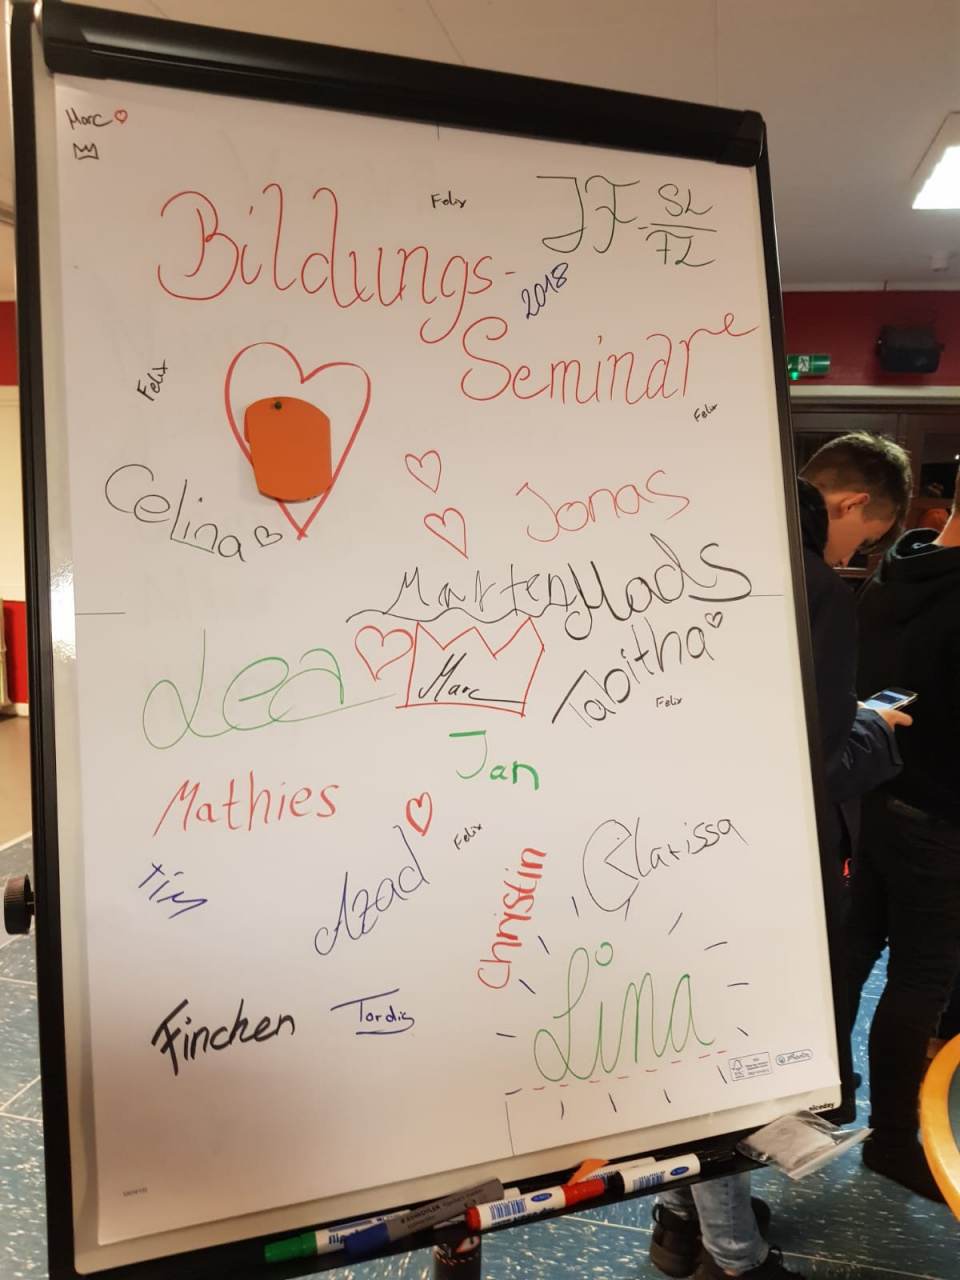 Marc
Felix
JF-SL
FL
Bildungs-
2018
Seminare
Felix
Felix
Celina
Jonas
Marten
Mads
Lea
Marc
Tabitha
Felix
Jan
Mathies
Felix
Clarissa
Tim
Azad
Christin
Lina
Finchen
Tordis
niceday